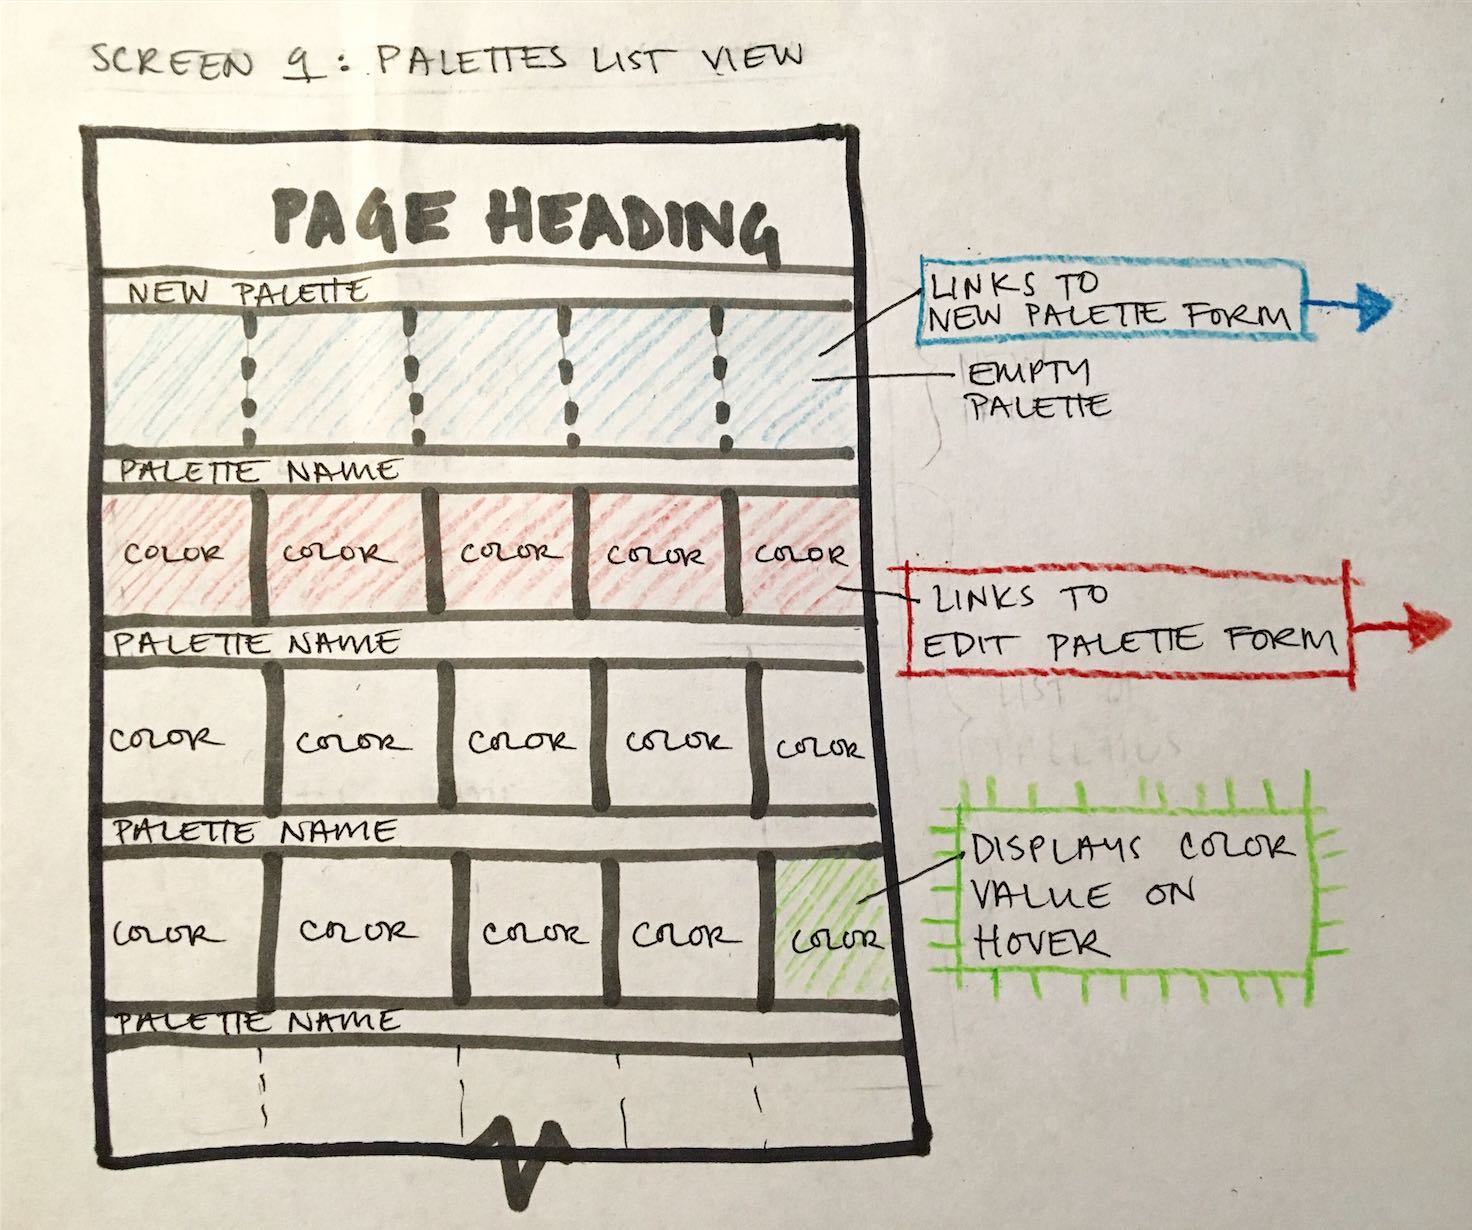 SCREEN 1: PALETTES LIST VIEW
PAGE HEADING
NEW PALETTE
LINKS TO
NEW PALETTE FORM
EMPTY
PALETTE
PALETTE NAME
COLOR COLOR COLOR COLOR COLOR
LINKS TO
EDIT PALETTE FORM
PALETTE NAME
COLOR COLOR COLOR COLOR COLOR
PALETTE NAME
COLOR COLOR COLOR COLOR COLOR
DISPLAYS COLOR
VALUE ON
HOVER
PALETTE NAME